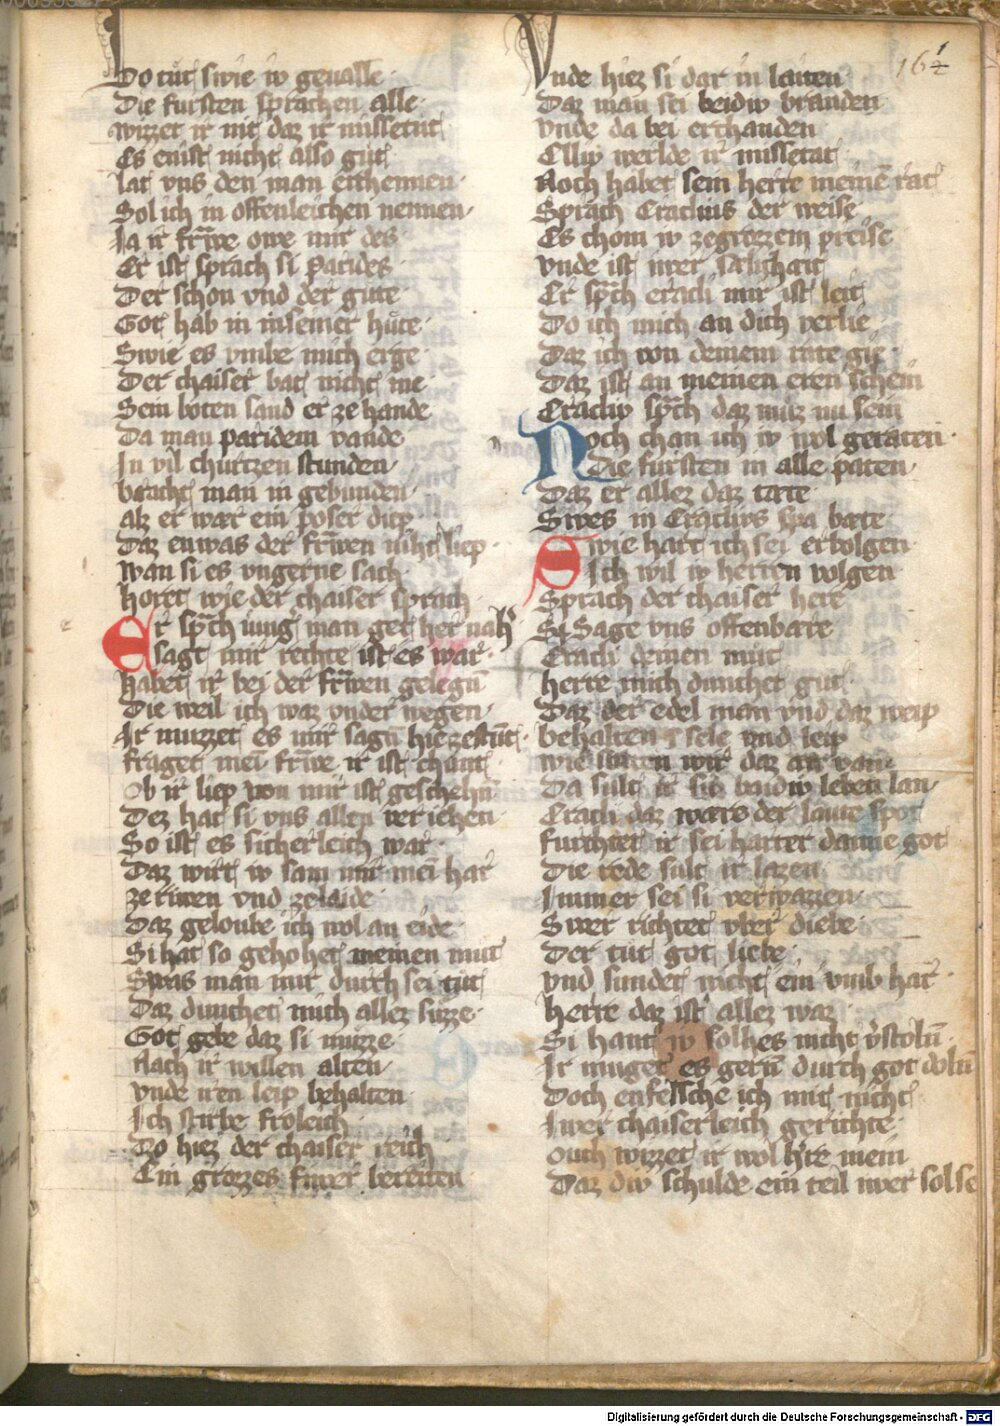 164
Do tůt swie iw geualle
Die fursten sprachen alle
wizzet ir nit daz ir missetůt
Es enist nicht also gůt
lat vns den man erchennen
Sol ich in offenleichen nennen
Ja ir frawe owe mir des
Er ist sprach si parides
Der schon vnd der gute
Got hab in in seiner hůte
Swie es vmbe mich erge
Der chaiser bat nicht me
Sein boten sand er ze hande
Da man paridem vande
In vil churtzen stunden
bracht man in gebunden
alz er war ein poser diep
Daz enwas der frawen niht liep
wan si es vngerne sach
horet wie der chaiser sprach
Er sprach iung man get her nah
sagt mir rechte ist es war
habet ir bei der frawen gelegen
Die weil ich waz vnder wegen
Ir muzzet es mir sagen hie zestunt
fraget mein frawe ir ist chunt
Ob ir liep von mir ist geschehen
Dez hat si vns allen veriehen
So ist es sicherleich war
Daz wirt iw sam mir mein har
ze riwen vnd ze laide
Daz geloube ich wol an eide
Si hat so gehohet meinen mut
Swas man mir durch sei tut
Daz dunchet mich allez suzze
Got gebe daz si muzze
Nach ir willen alten
vnde iren leip behalten
Ich stirbe froleich
Do hiez der chaiser reich
Ein grozzes fiwer bereiten
Vnde hiez si dar in laiten
Daz man sei beidiw branden
vnde da bei erchanden
Elliw werlde ir missetat
Noch habet sein herre meinen rat
Sprach Eraclius der weise
Es chom iw ze grozzem preise
vnde ist iwer sælichait
Er sprach eracli mir ist leit
Do ich mich an dich verlie
Daz ich von deinem rate gie
Daz ist an meinen eren schein
Eracliw sprach daz muz nu sein
Noch chan ich iw wol geraten
Die fursten in alle paten
Daz er allez daz tate
Swes in Eraclivs bate
Swie hart ich sei erbolgen
Ich wil iw herren volgen
Sprach der chaiser here
Sage vns offenbare
Eracli deinen mut
herre mich dunchet gut
Daz der edel man vnd daz weip
behalten sele vnd leip
wie sullen wir daz an van
Da sult ir sei baidiw leben lan
Eracli daz were der laute spot
furchtet ir sei harter danne got
Die rede sult ir lazen
Immer sei si verwazzen
Swer richtet vber diebe
Der tut got liebe
vnd sundet nicht ein vmb har
herre daz ist allez war
Si hant iw solhes nicht verstoln
Ir muget es gern durch got doln
Doch enfessche ich mit nicht
Iwer chaiserleich gerichte
Ouch wizzet ir wol herre mein
Daz diw schulde ein teil iwer sol sein
Digitalisierung gefördert durch die Deutsche Forschungsgemeinschaft - DFG